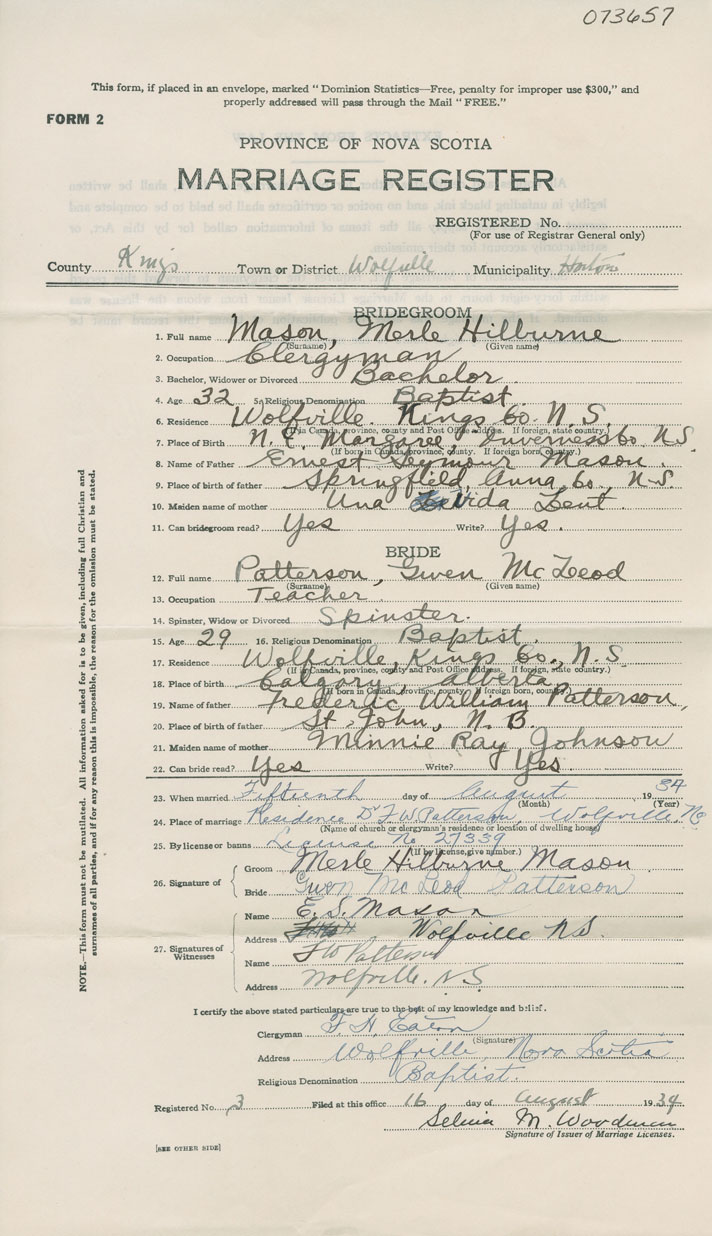 073657
This form, if placed in an envelope, marked "Dominion Statistics—Free, penalty for improper use $300," and
properly addressed will pass through the Mail "FREE."
FORM 2
PROVINCE OF NOVA SCOTIA
MARRIAGE REGISTER
REGISTERED No.
(For use of Registrar General only)
County Kings Town or District Wolfville Municipality Horton
BRIDEGROOM
1. Full name Mason, Merle Hilburne
(Surname) (Given name)
2. Occupation Clergyman
3. Bachelor, Widower or Divorced Bachelor
4. Age 32 5. Religious Denomination Baptist
6. Residence Wolfville. Kings Co. N. S.
(If in Canada, province, county and Post Office address. If foreign, state country.)
7. Place of Birth N. E. Margaree, Inverness Co. N.S.
(If born in Canada, province, county. If foreign born, country.)
8. Name of Father Ernest Seymour Mason.
9. Place of birth of father Springfield, Anna. Co., N.S.
10. Maiden name of mother Una Vida Lent
11. Can bridegroom read? Yes Write? Yes.
BRIDE
12. Full name Patterson, Gwen McLeod
(Surname) (Given name)
13. Occupation Teacher
14. Spinster, Widow or Divorced Spinster.
15. Age 29 16. Religious Denomination Baptist.
17. Residence Wolfville, Kings Co., N.S
(If in Canada, province, county and Post Office address. If foreign, state country.)
18. Place of birth Calgary, Alberta
(If born in Canada, province, county. If foreign born, country.)
19. Name of father Frederic William Patterson,
20. Place of birth of father St. John, N. B.
21. Maiden name of mother Minnie Ray Johnson
22. Can bride read? Yes Write? Yes
23. When married Fifteenth day of August 1934
(Month) (Year)
24. Place of marriage Residence Dr F W Patterson, Wolfville NS
(Name of church or clergyman's residence or location of dwelling house)
25. By license or banns License No 27339
(If by license, give number.)
26. Signature of Groom Merle Hilburne Mason.
Bride Gwen McLeod Patterson
27. Signatures of Witnesses
Name E. S. Mason
Address Wolfville N.S.
Name F W Patterson
Address Wolfville. N.S.
I certify the above stated particulars are true to the best of my knowledge and belief.
Clergyman F. H. Eaton
(Signature)
Address Wolfville, Nova Scotia
Religious Denomination Baptist.
Registered No. 3 Filed at this office 16 day of August 1934
M. Woodman
Signature of Issuer of Marriage Licenses.
[SEE OTHER SIDE]
NOTE.—This form must not be mutilated. All information asked for is to be given, including full Christian and
surnames of all parties, and if for any reason this is impossible, the reason for the omission must be stated.